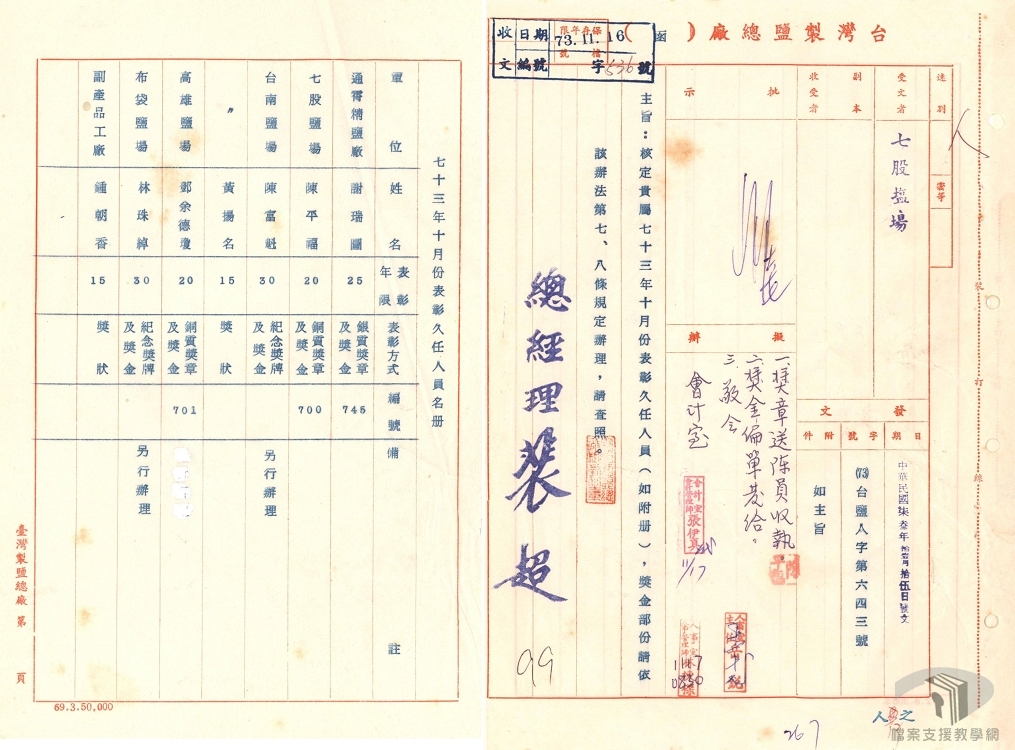 台灣製鹽總廠(函)
保存年限
檔號
收文
日期 73.11.16
編號 字636號
速別
密等
受文者
七股塩場
副本
收受者
批示
擬辦
一獎章送陳員收執。
二獎金偏單發給。
三敬会
會計室
會計室
張伊真
11/17
發文
日期
字號
附件
中華民國柒叁年拾壹月拾伍日發文
(73)台鹽人字第六四三號
如主旨
主旨：核定貴屬七十三年十月份表彰久任人員（如附册），獎金部份請依
該辦法第七、八條規定辦理，請查照。
總經理裴超
99
267
裝
訂
線
檔案支援教學網
七十三年十月份表彰久任人員名册
單位 姓名 表彰年限 表彰方式 編號 備註
通霄精鹽廠 謝瑞圖 25 銀質獎章及獎金 745
七股鹽場 陳平福 20 銅質獎章及獎金 700
台南鹽場 陳富魁 30 紀念獎牌及獎金 另行辦理
〃 黃揚名 15 獎狀
高雄鹽場 鄧余德瓊 20 銅質獎章及獎金 701
布袋鹽場 林珠綽 30 紀念獎牌及獎金 另行辦理
副產品工廠 鍾朝香 15 獎狀
臺灣製鹽總廠 第 頁
69.3.50,000